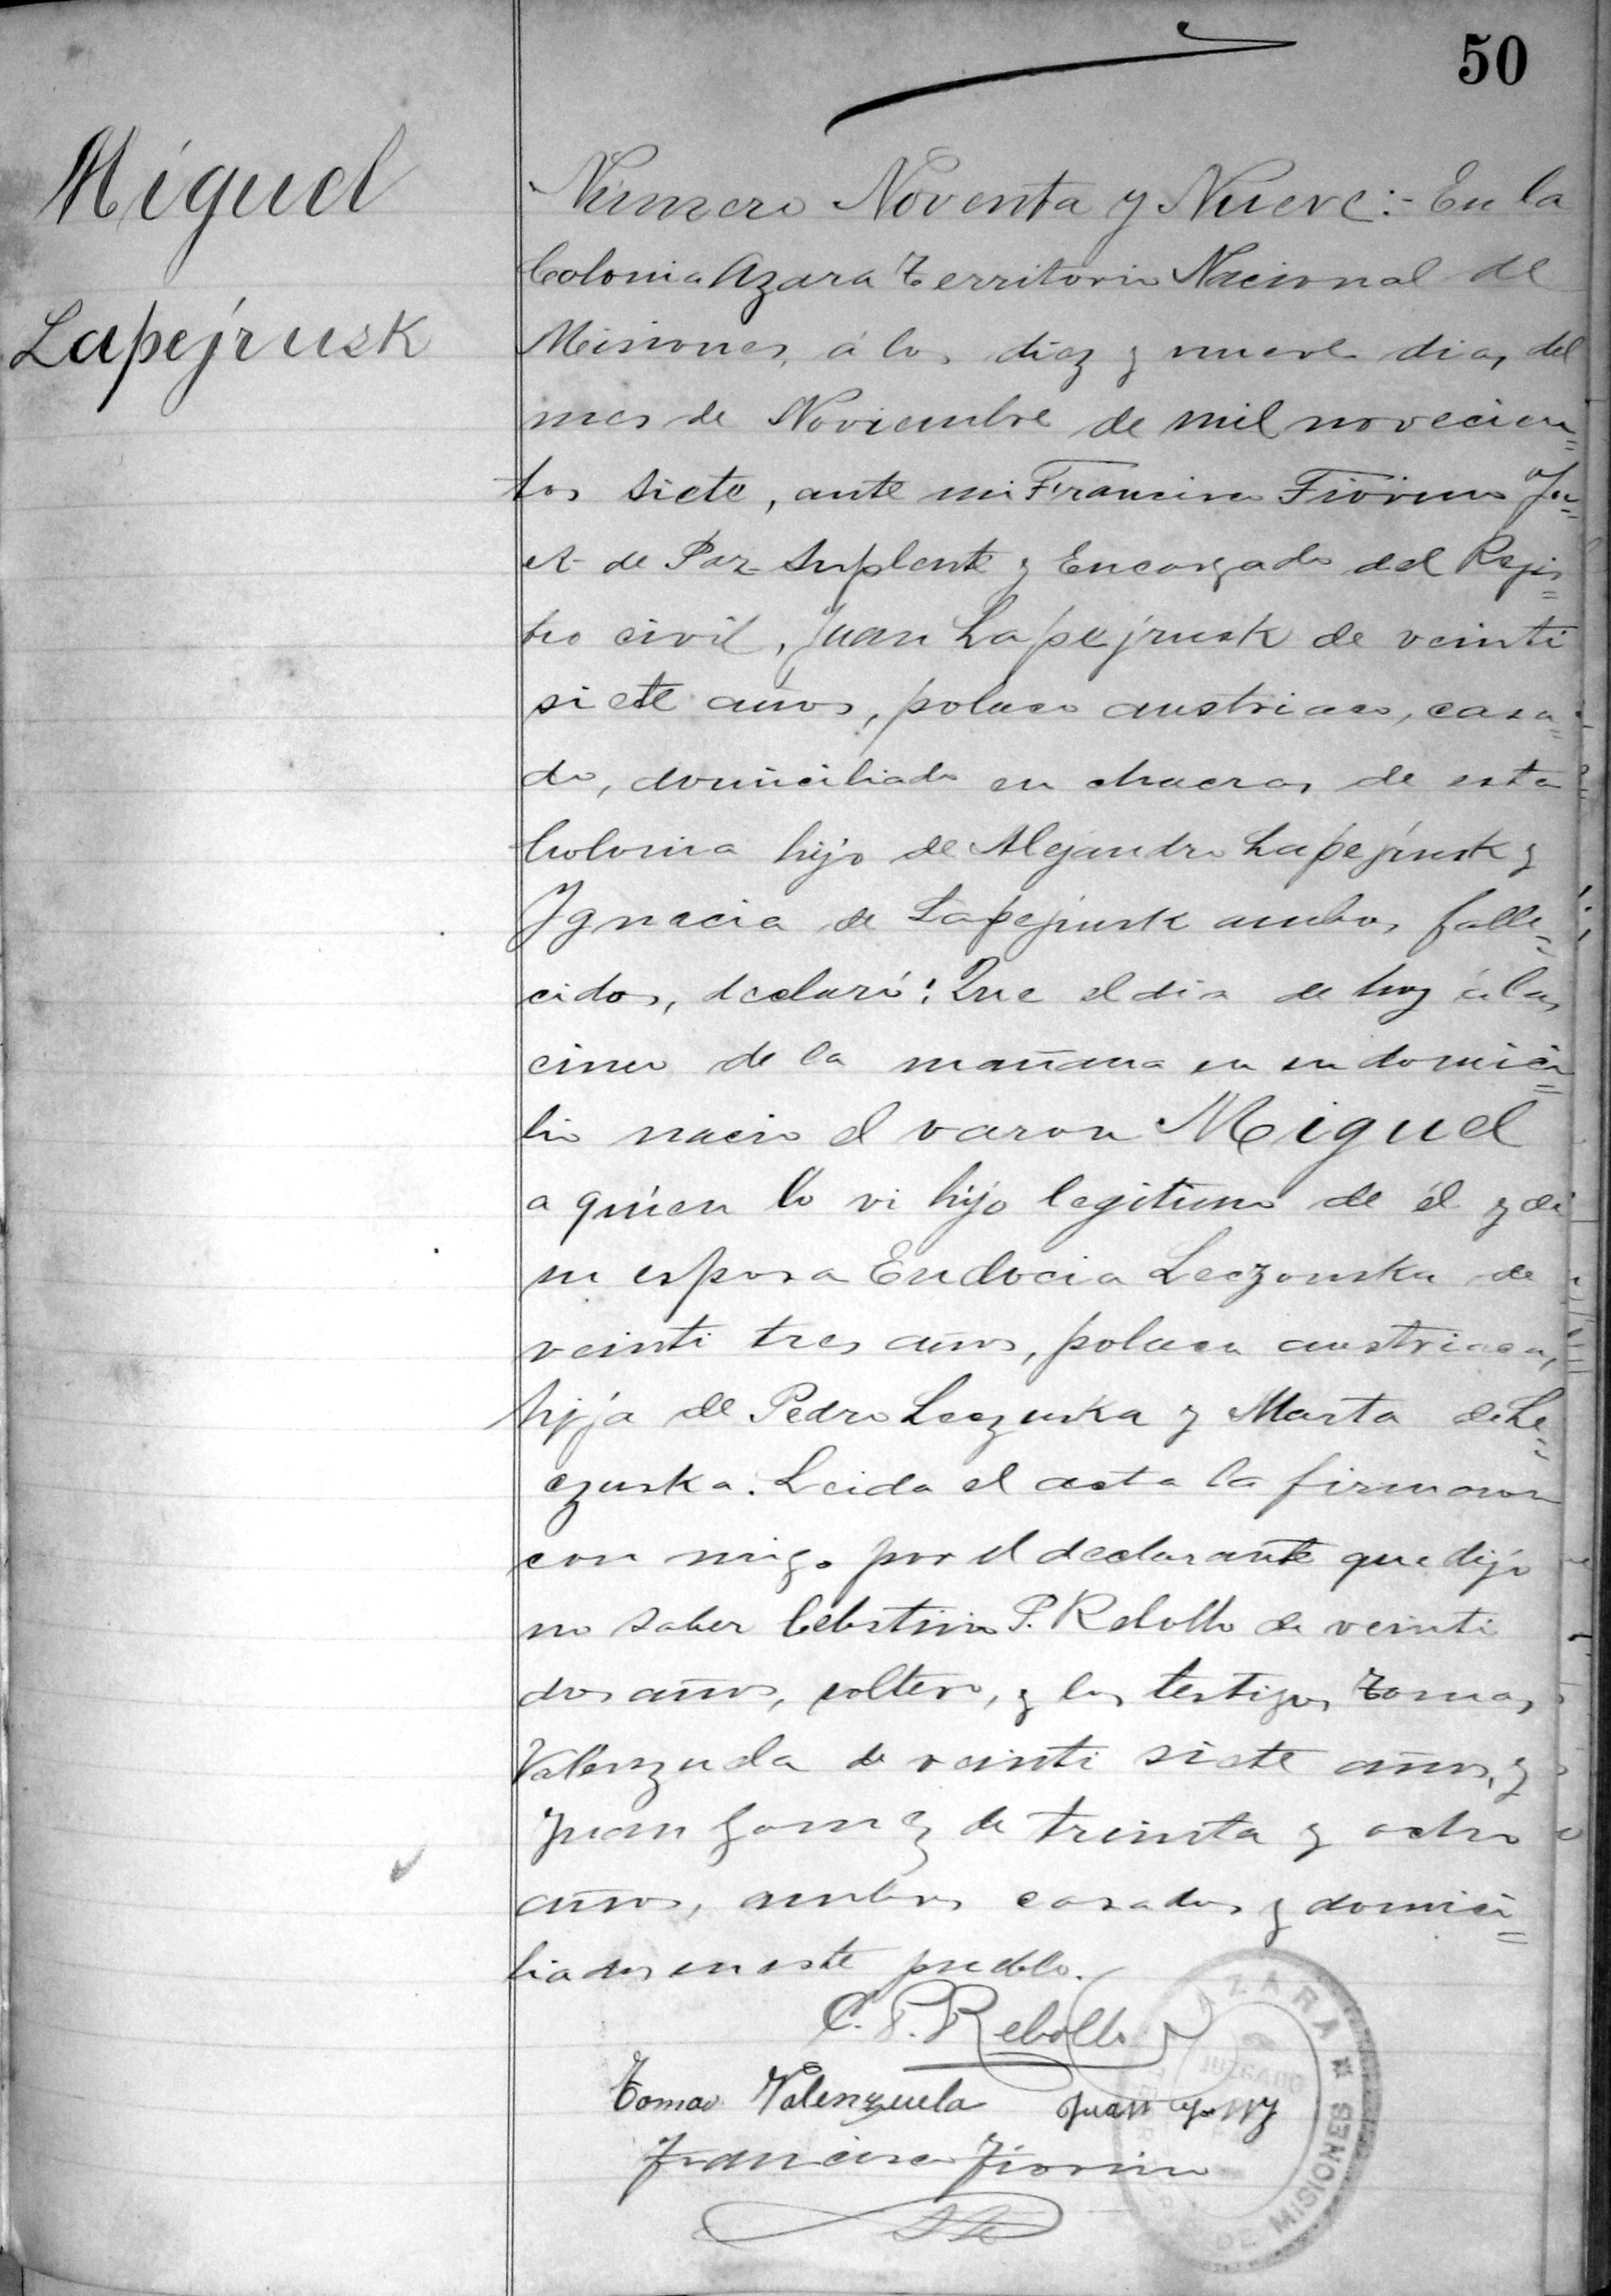 50
Miguel
Lapejrusk
Número Noventa y Nueve:- En la
Colonia Azara Territorio Nacional de
Misiones, á los diez y nueve dias del
mes de Noviembre de mil novecien=
tos siete, ante mi Francisco Fiorino Ju=
ez de Paz Suplente y Encargado del Regis=
tro civil, Juan Lapejrusk de veinti
siete años, polaco austriaco, casa=
do, domiciliado en chacras de esta
Colonia hijo de Alejandro Lapejrusk y
Ygnacia de Lapejrusk ambos falle=
cidos, declaró: Que el dia de hoy á las
cinco de la mañana en su domici=
lio nacio el varon Miguel
a quien lo vi hijo legitimo de él y de
su esposa Eudocia Leczouska de
veinti tres años, polaca austriaca,
hija de Pedro Leczuska y Marta de Le=
czuska. Leida el acta la firmaron
con migo por el declarante que dijo
no saber Celestino P. Rebollo de veinti
dos años, soltero, y los testigos Tomas
Valenzuela de veinti siete años, y
Juan Gomez de treinta y ocho
años, ambos casados y domici=
liados en este pueblo.
C. P. Rebollo
Tomas Valenzuela Juan Gomez
Francisco Fiorino
AZARA
JUZGADO
DE MISIONES